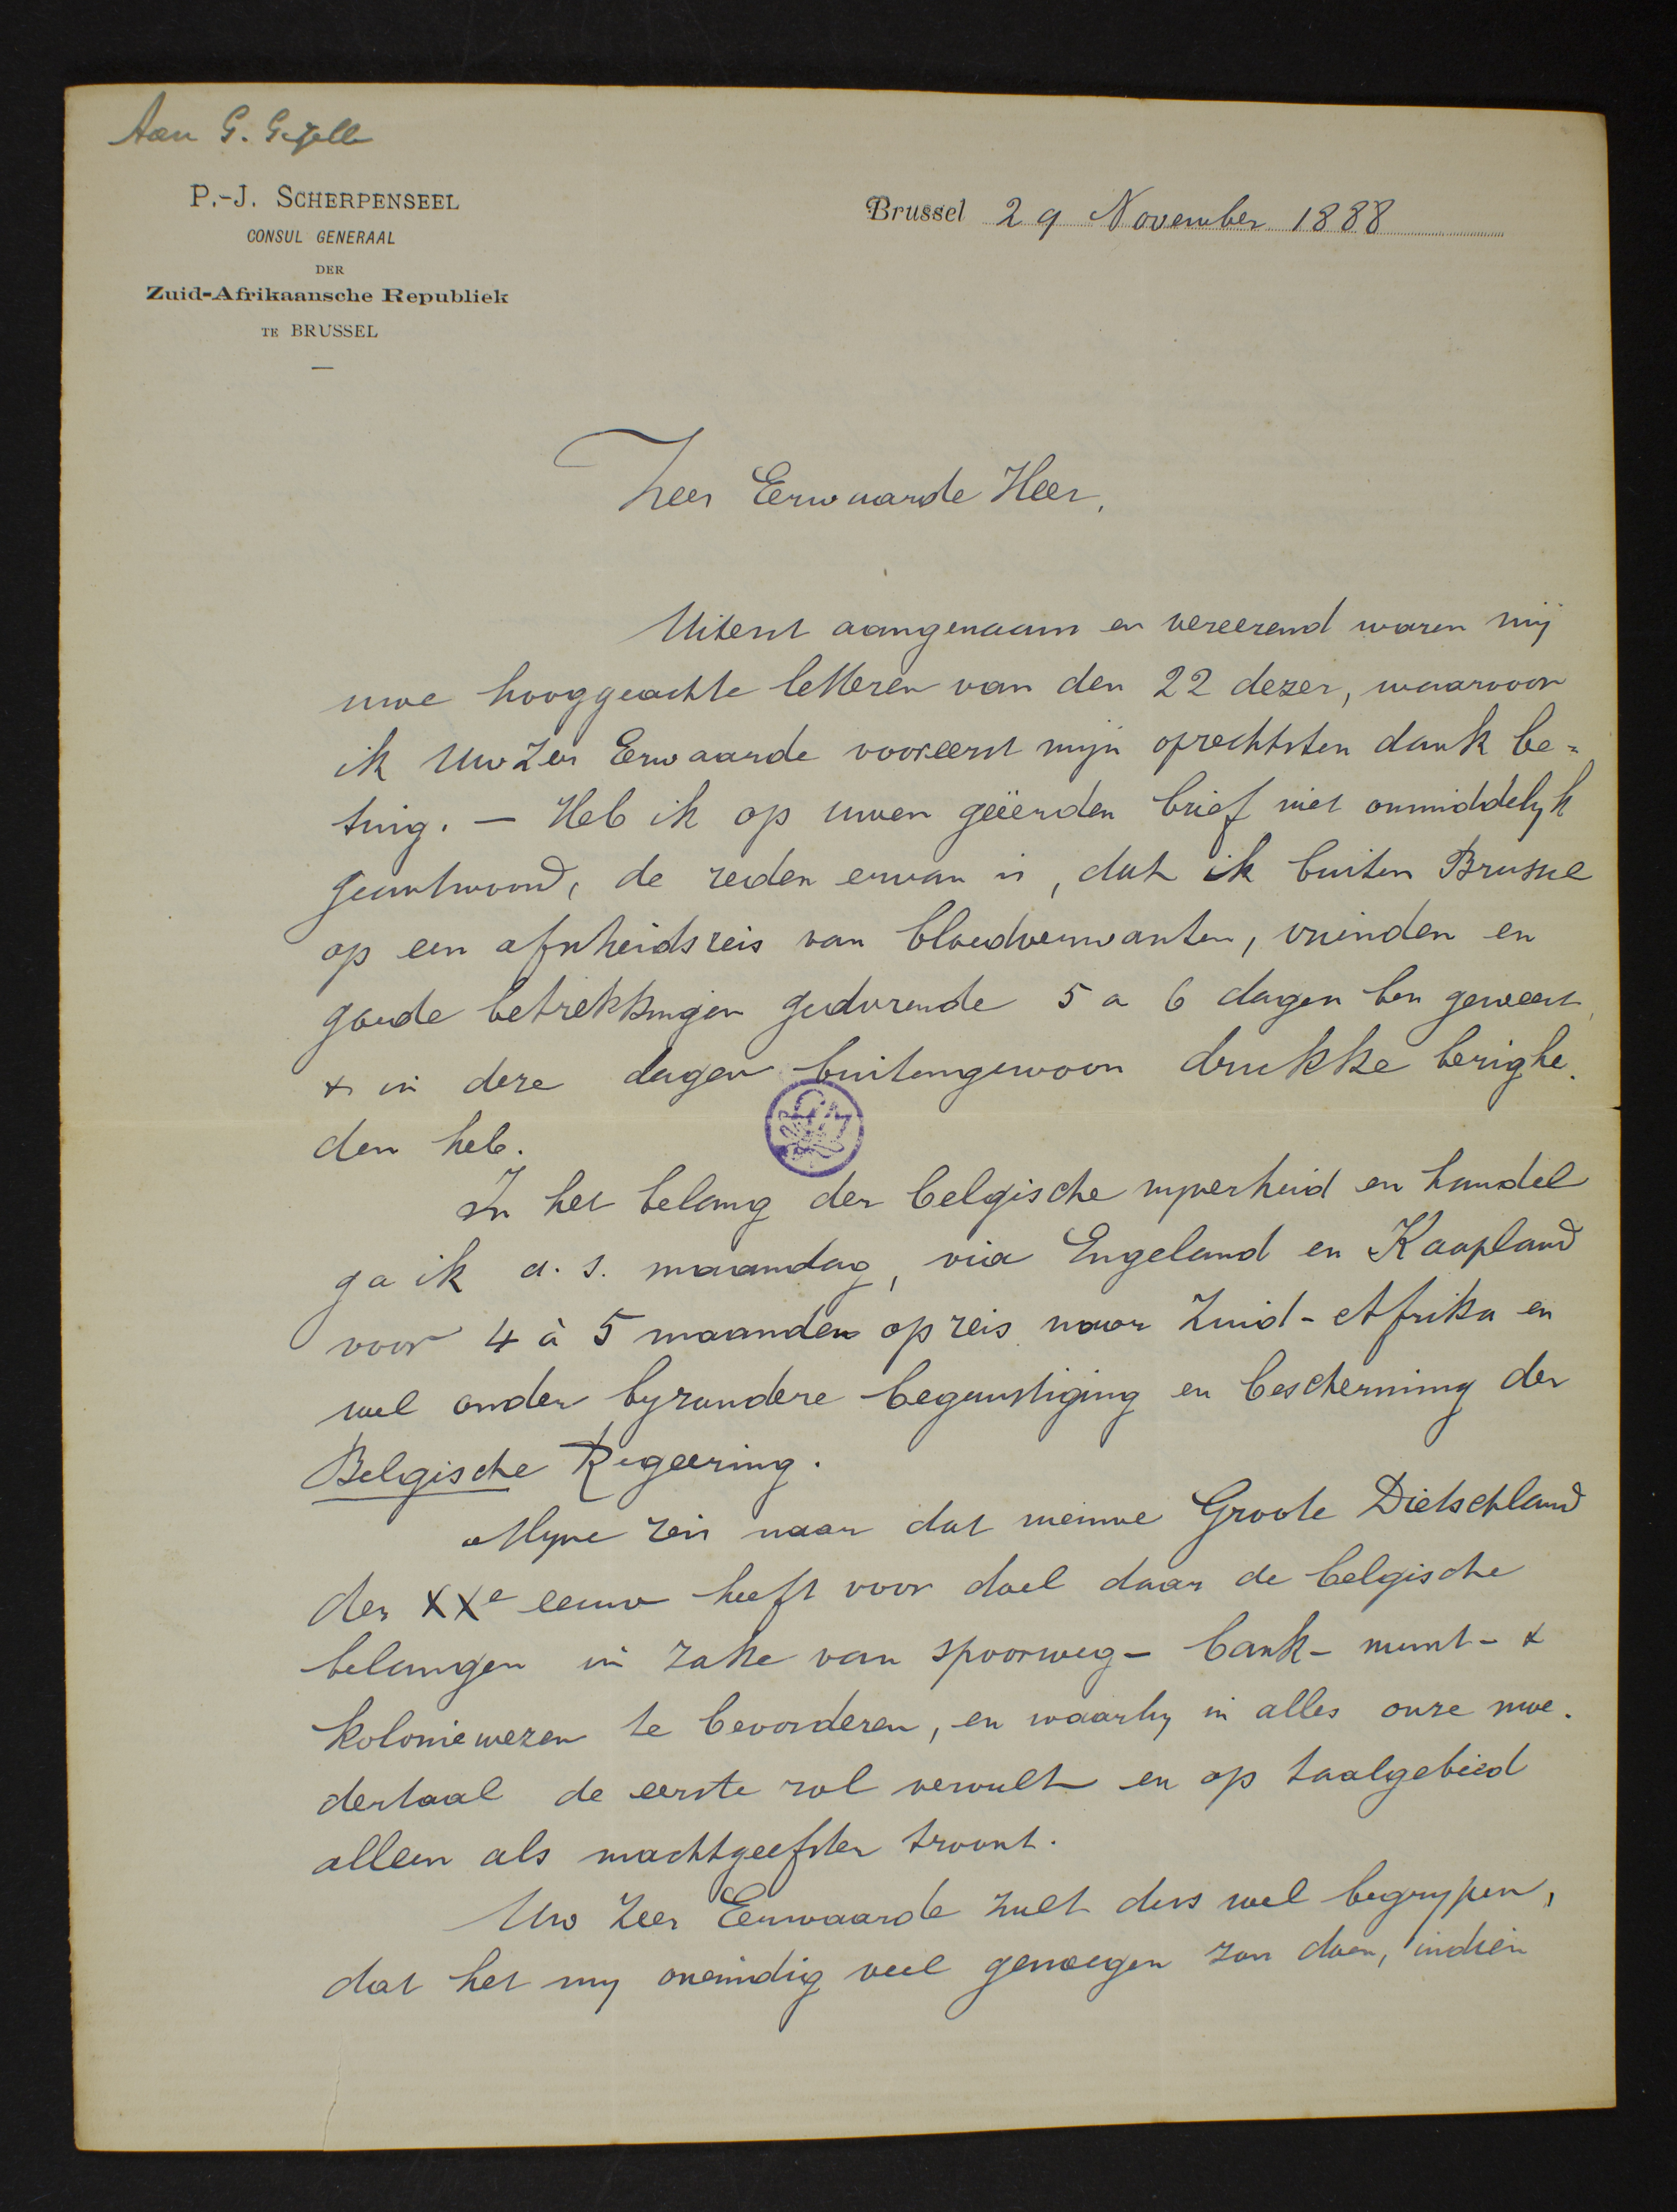 Aan G. Gezelle
P.-J. SCHERPENSEEL
CONSUL GENERAAL
DER
Zuid-Afrikaansche Republiek
TE BRUSSEL
Brussel 29 November 1888
Zeer Eerwaarde Heer,
Uiterst aangenaam en vereerend waren mij
uwe hooggeachte letteren van den 22 dezer, waarvoor
ik Uw Zeer Eerwaarde vooreerst mijn oprechtsten dank be=
tuig. — Heb ik op uwen geëerden brief niet onmiddelyk
geantwoord, de reden ervan is, dat ik buiten Brussel
op een afscheidsreis van bloedverwanten, vrienden en
goede betrekkingen gedurende 5 a 6 dagen ben geweest,
& in deze dagen buitengewoon drukke bezighe-
den heb.
In het belang der belgische nyverheid en handel
ga ik a.s. maandag, via Engeland en Kaapland
voor 4 à 5 maanden op reis naar Zuid-Afrika en
wel onder byzondere begunstiging en bescherming der
Belgische Regeering.
Myne reis naar dat nieuwe Groote Dietschland
der XXe eeuw heeft voor doel daar de belgische
belangen in zake van spoorweg- bank- munt- &
koloniewezen te bevorderen, en waarby in alles onze moe-
dertaal de eerste rol vervult en op taalgebied
alleen als machtgeefster troont.
Uw Zeer Eerwaarde zult dus wel begrypen,
dat het my oneindig veel genoegen zou doen, indien